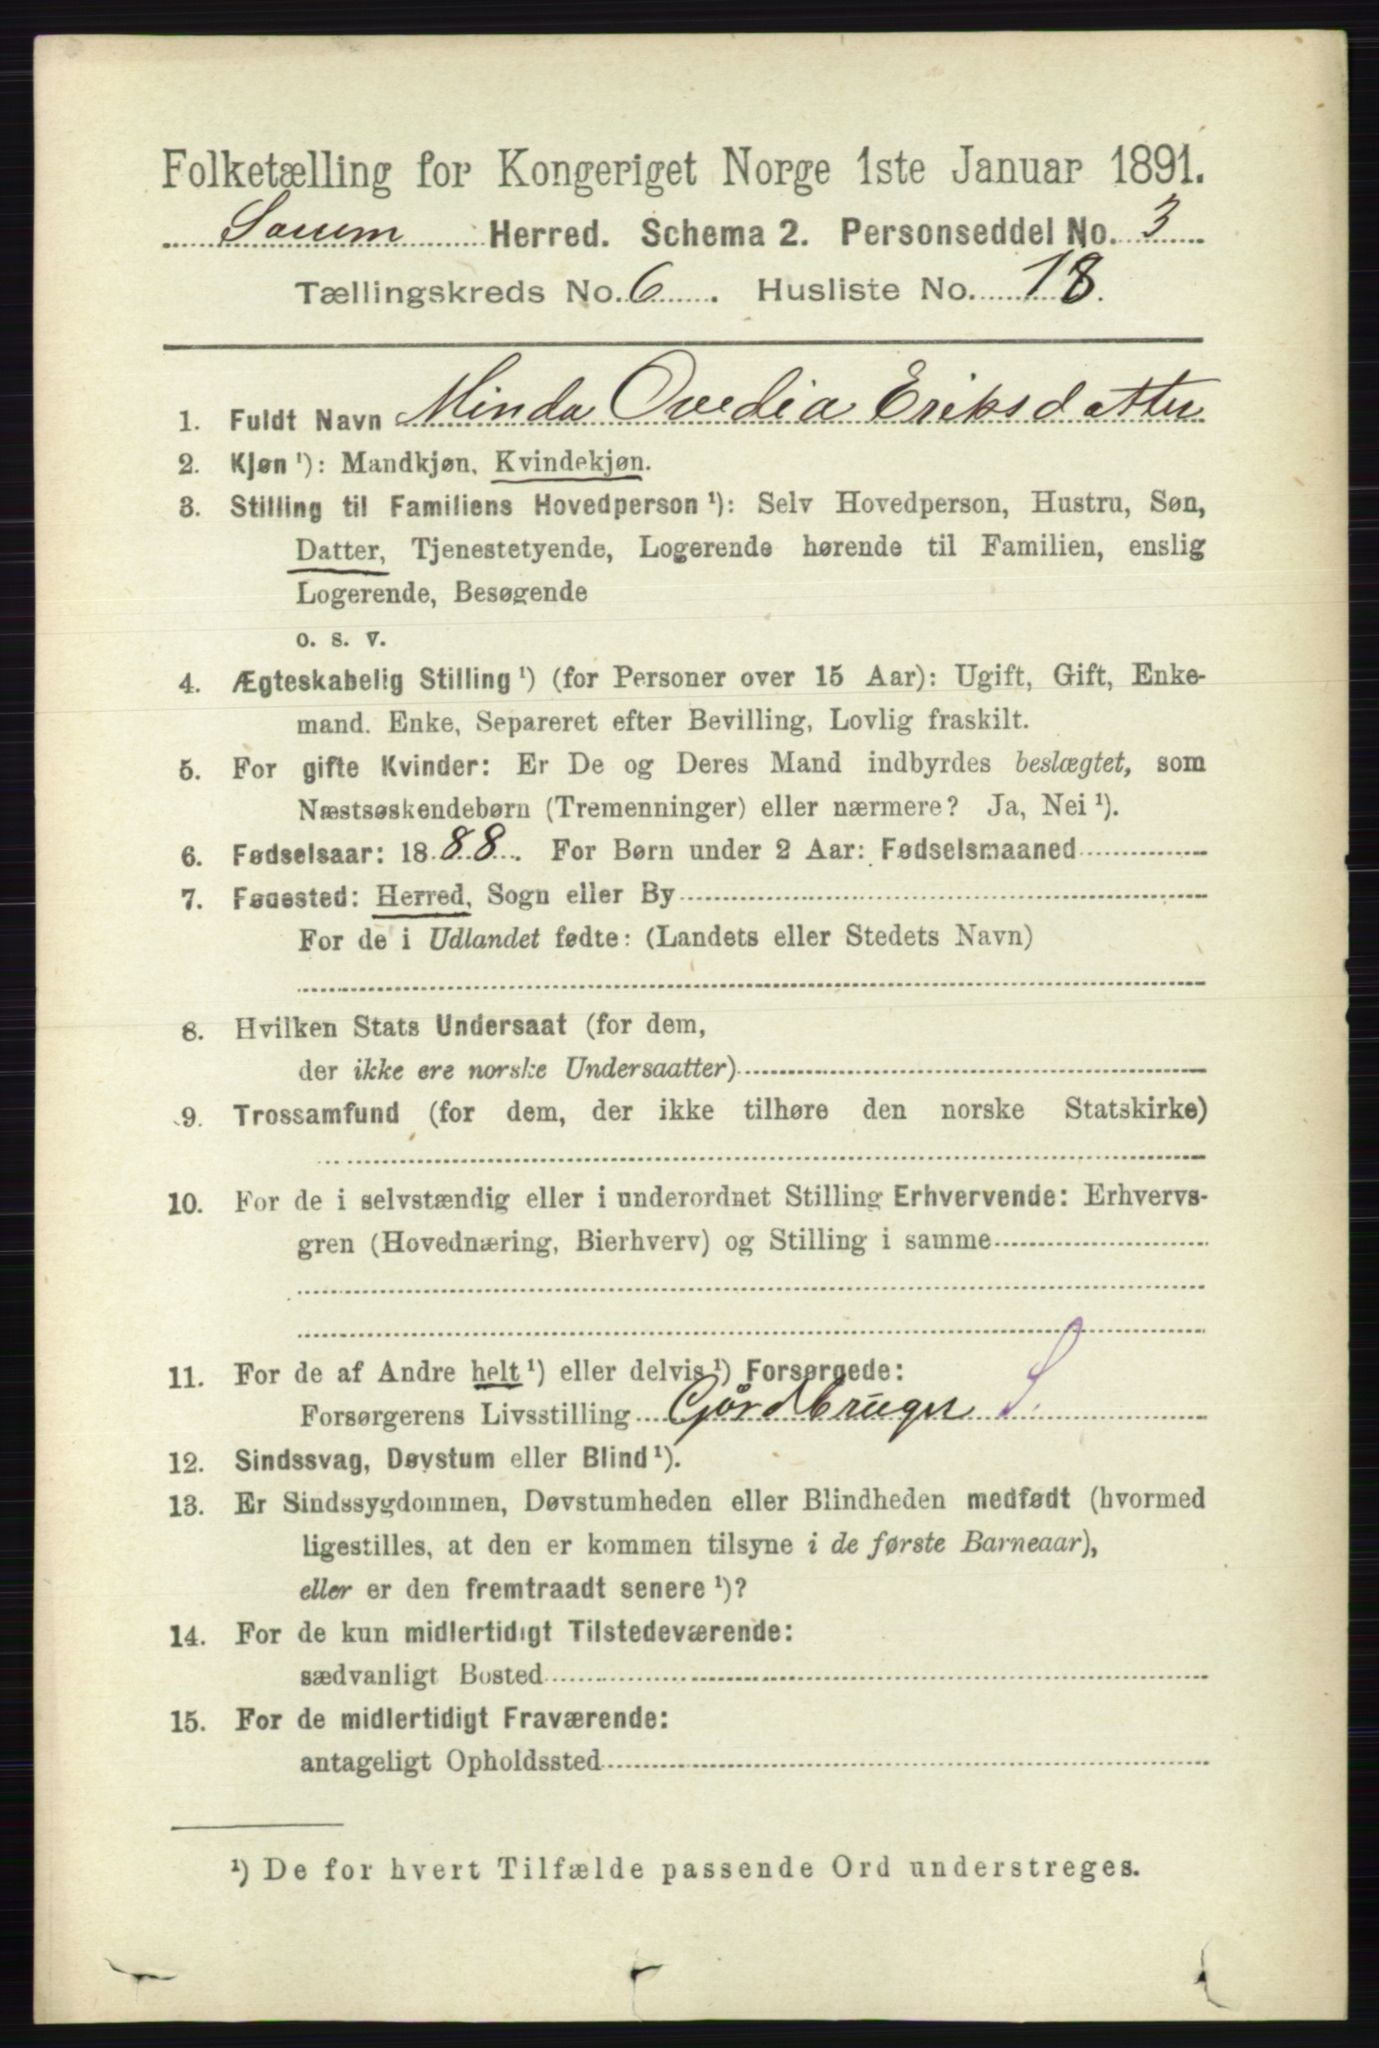 Folketælling for Kongeriget Norge 1ste Januar 1891.
Sørum Herred. Schema 2. Personseddel No. 3
Tællingskreds No. 6. Husliste No. 18.
1. Fuldt Navn Minda Ovedia Eriksdatter
2. Kjøn ¹): Mandkjøn, Kvindekjøn.
3. Stilling til Familiens Hovedperson ¹): Selv Hovedperson, Hustru, Søn,
Datter, Tjenestetyende, Logerende hørende til Familien, enslig
Logerende, Besøgende
o. s. v.
4. Ægteskabelig Stilling ¹) (for Personer over 15 Aar): Ugift, Gift, Enke-
mand. Enke, Separeret efter Bevilling, Lovlig fraskilt.
5. For gifte Kvinder: Er De og Deres Mand indbyrdes beslægtet, som
Næstsøskendebørn (Tremenninger) eller nærmere? Ja, Nei ¹).
6. Fødselsaar: 1888. For Børn under 2 Aar: Fødselsmaaned
7. Fødested: Herred, Sogn eller By
For de i Udlandet fødte: (Landets eller Stedets Navn)
8. Hvilken Stats Undersaat (for dem,
der ikke ere norske Undersaatter)
9. Trossamfund (for dem, der ikke tilhøre den norske Statskirke)
10. For de i selvstændig eller i underordnet Stilling Erhvervende: Erhvervs-
gren (Hovednæring, Bierhverv) og Stilling i samme
11. For de af Andre helt ¹) eller delvis ¹) Forsørgede:
Forsørgerens Livsstilling Gårdbruger S.
12. Sindssvag, Døvstum eller Blind ¹).
13. Er Sindssygdommen, Døvstumheden eller Blindheden medfødt (hvormed
ligestilles, at den er kommen tilsyne i de første Barneaar),
eller er den fremtraadt senere ¹)?
14. For de kun midlertidigt Tilstedeværende:
sædvanligt Bosted
15. For de midlertidigt Fraværende:
antageligt Opholdssted
¹) De for hvert Tilfælde passende Ord understreges.